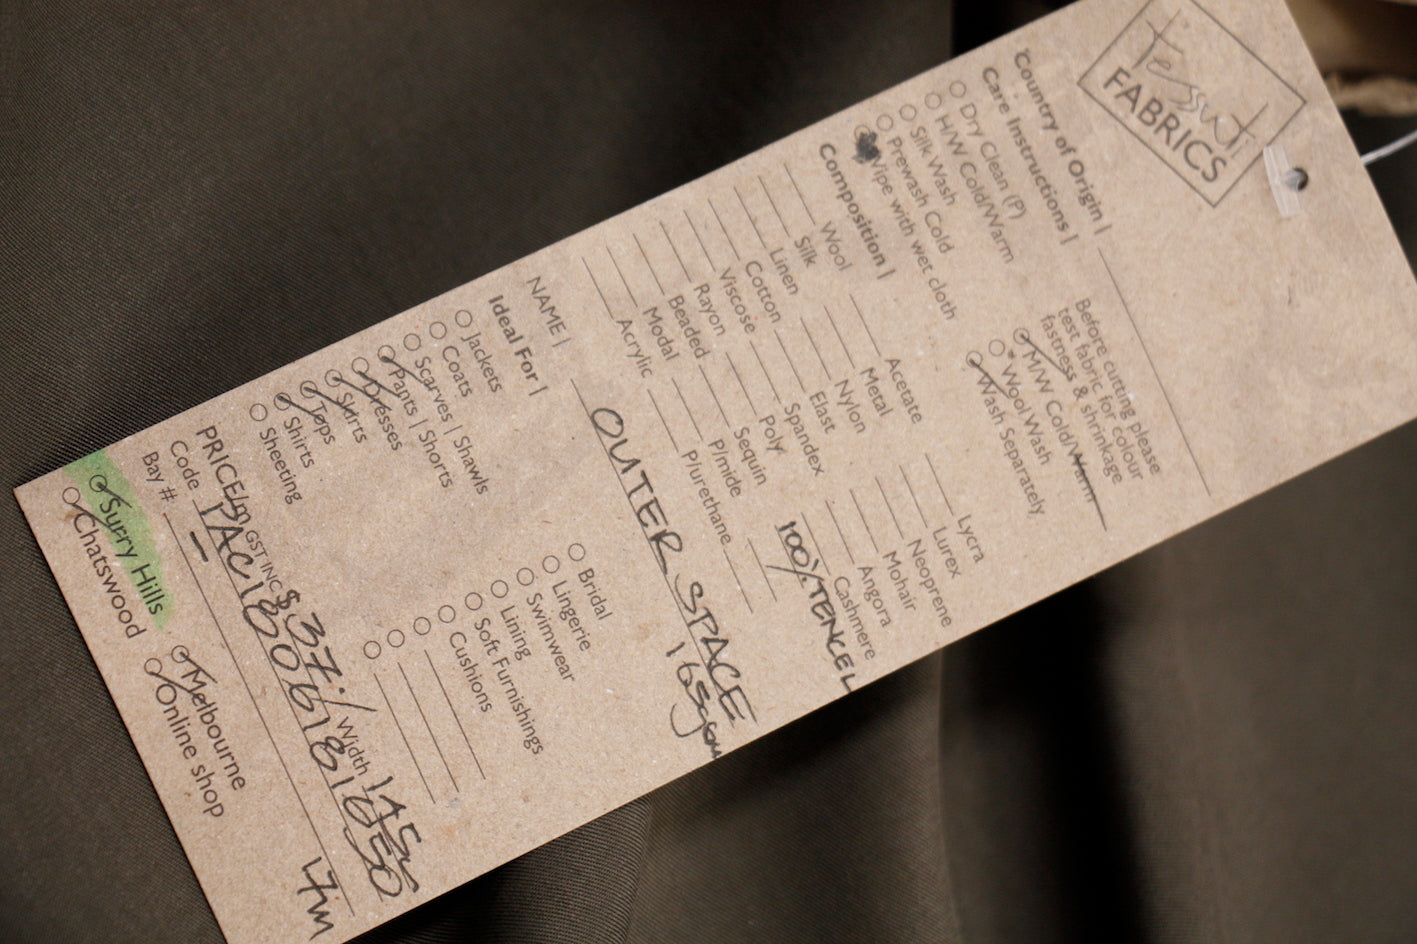 tessuti
FABRICS
Country of Origin |
Care Instructions |
Dry Clean (P)
H/W Cold/Warm
Silk Wash
Prewash Cold
Wipe with wet cloth
Before cutting please
test fabric for colour
fastness & shrinkage
M/W Cold/Warm
Wool Wash
Wash Separately
Composition |
Wool Acetate Lycra
Silk Metal Lurex
Linen Nylon Neoprene
Cotton Elast Mohair
Viscose Spandex Angora
Rayon Poly Cashmere
Beaded Sequin 100% TENCEL
Modal P/mide
Acrylic P/urethane
NAME | OUTER SPACE
165gsm
Ideal For |
Jackets Bridal
Coats Lingerie
Scarves | Shawls Swimwear
Pants | Shorts Lining
Dresses Soft Furnishings
Skirts Cushions
Tops
Shirts
Sheeting
PRICE/m GST INC $ 37 Width 145
Code
Bay #
Surry Hills Melbourne
Chatswood Online shop